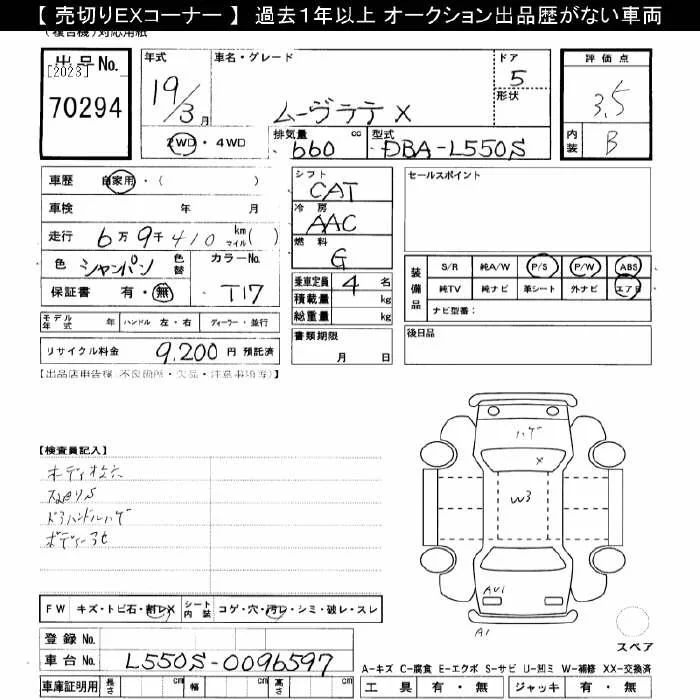 【 売切りEXコーナー 】 過去1年以上 オークション出品歴がない車両
(複合機)対応用紙
出品No. [2023] 70294
年式 19/3月
車名・グレード ムーヴラテ X
ドア 5
形状
2WD・4WD
排気量 660 cc
型式 DBA-L550S
評価点 3.5
内装 B
車歴 自家用・( )
車検 年 月
走行 6万9千410 km マイル( )
色 シャンパン 色替 カラーNo. T17
保証書 有・無
シフト CAT
冷房 AAC
燃料 G
乗車定員 4 名
積載量 kg
総重量 kg
セールスポイント
装備品 S/R 純A/W P/S P/W ABS
純TV 純ナビ 革シート 外ナビ エアB
ナビ型番:
モデル年式 年 ハンドル 左・右 ディーラー・並行
リサイクル料金 9,200 円 預託済
書類期限 月 日
後日品
【出品店申告欄(不良個所・欠品・注意事項等)】
【検査員記入】
ドアハンドルハゲ
ハゲ
X
W3
AU1
A1
FW キズ・トビ石・割レX シート内装 コゲ・穴・汚レ・シミ・破レ・スレ
スペア
登録No.
車台No. L550S-0096597
A-キズ C-腐食 E-エクボ S-サビ U-凹ミ W-補修 XX-交換済
車庫証明用 長さ cm 幅 cm 高さ cm
工具 有・無 ジャッキ 有・無